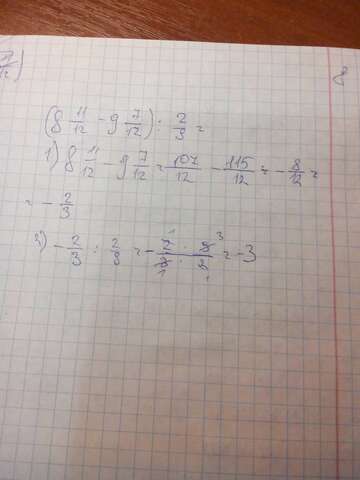 (8 11/12 - 9 7/12) : 2/9 =
1) 8 11/12 - 9 7/12 = 107/12 - 115/12 = - 8/12 =
= - 2/3
2) - 2/3 : 2/9 = - 2 · 9 / 3 · 2 = - 3